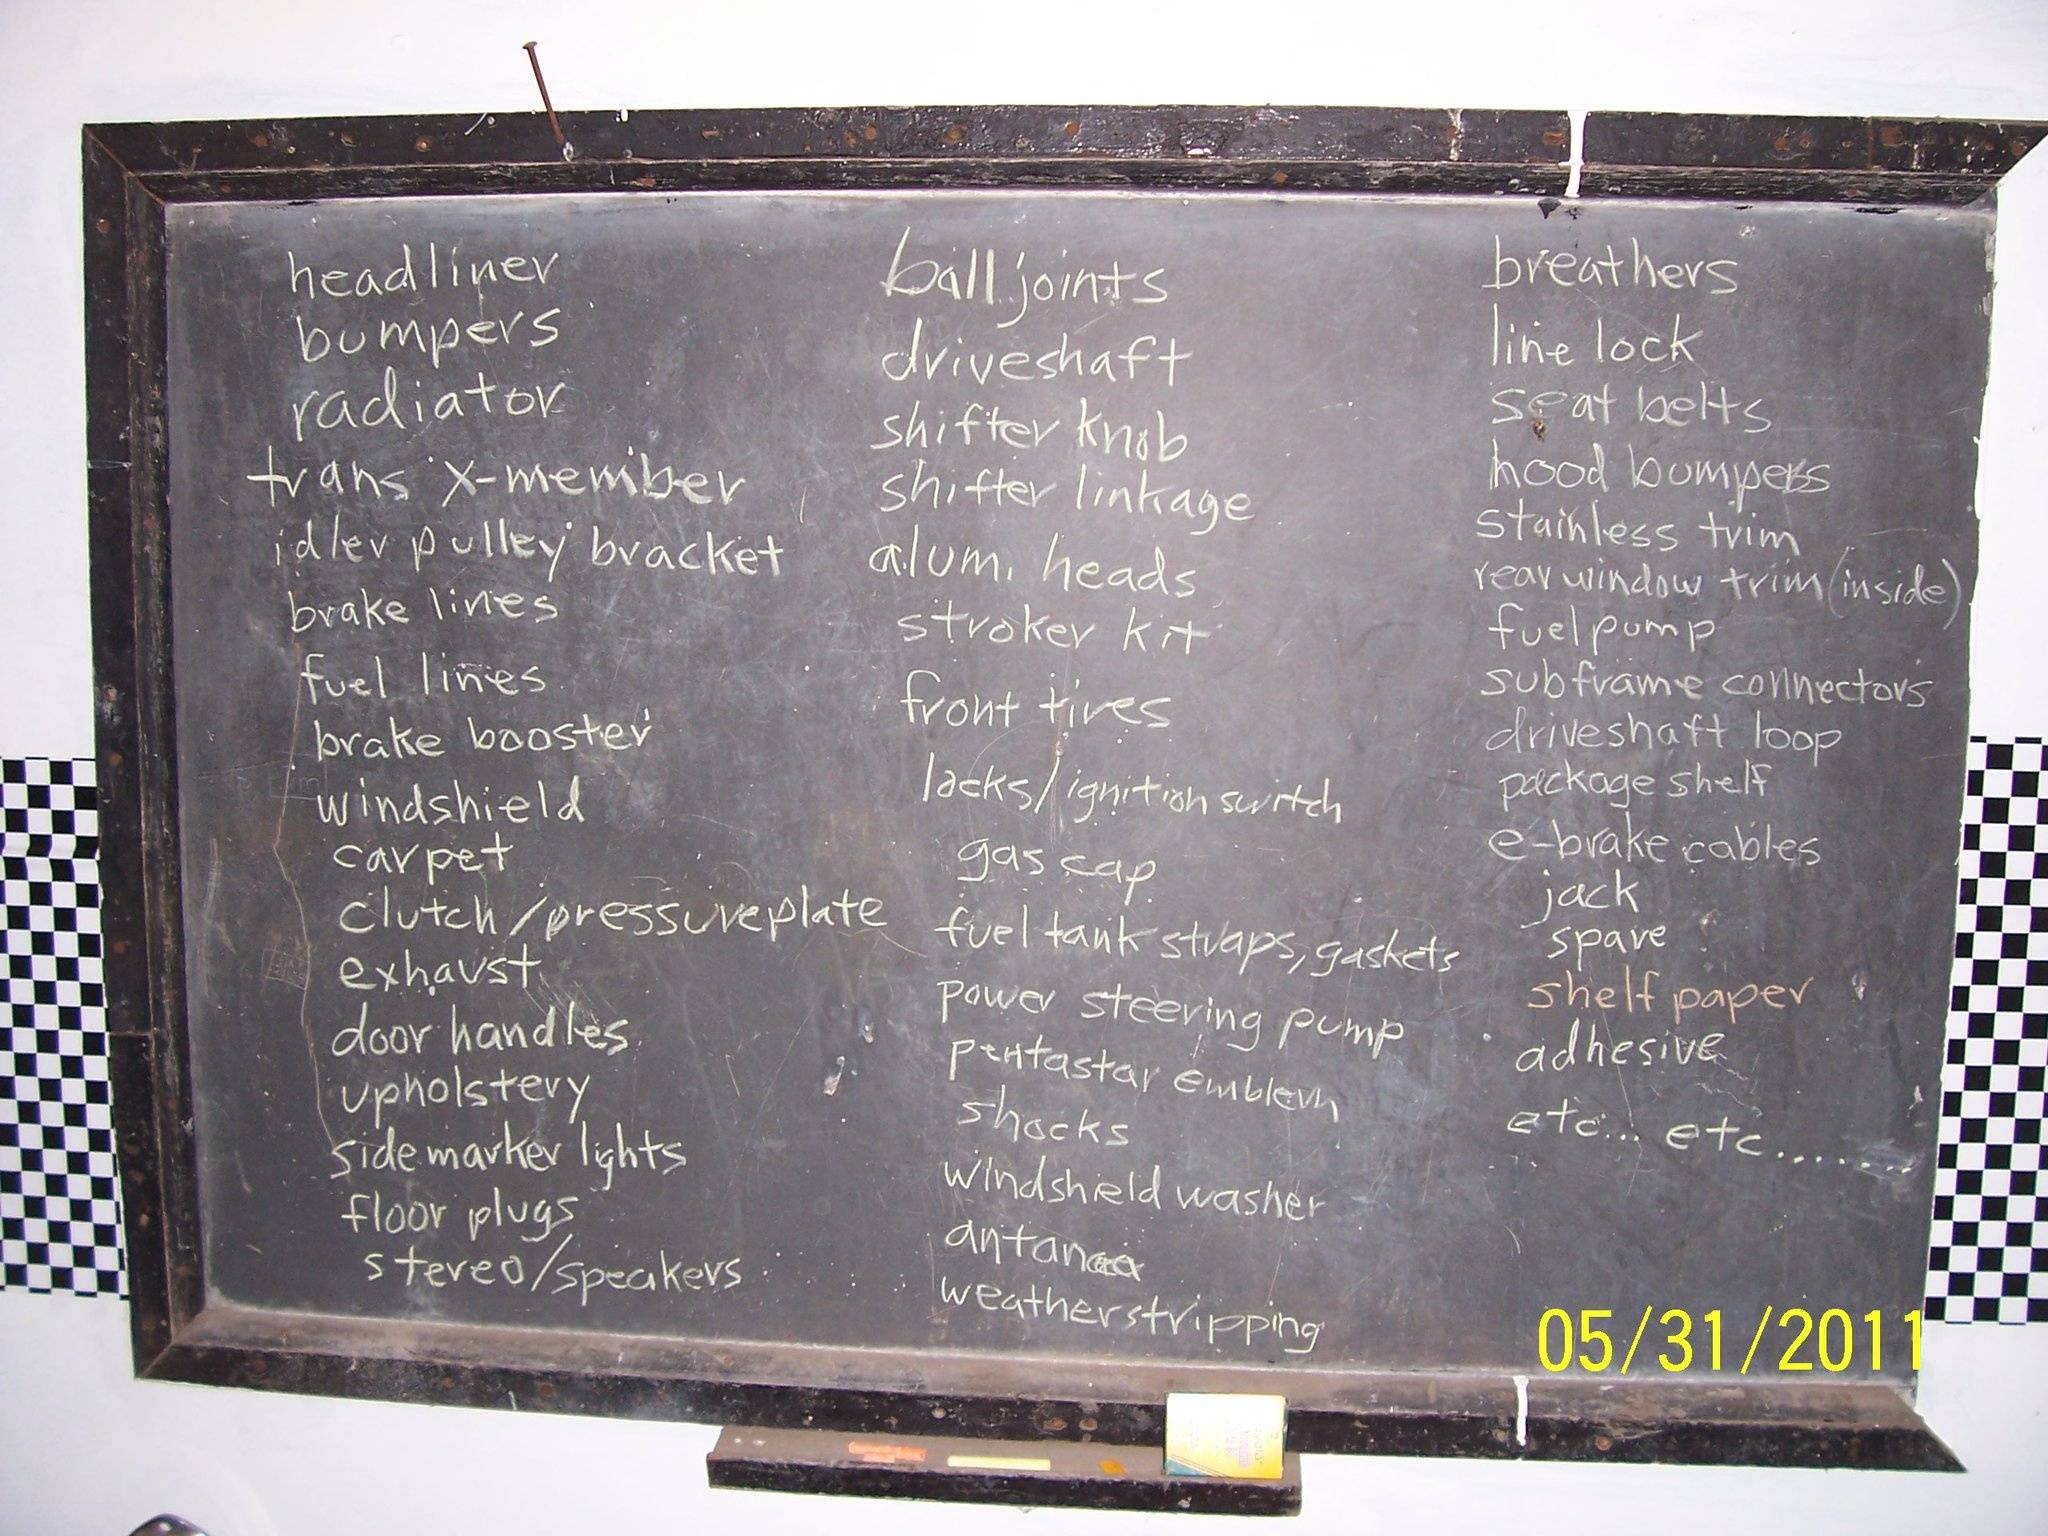 headliner
bumpers
radiator
trans x-member
idler pulley bracket
brake lines
fuel lines
brake booster
windshield
carpet
clutch/pressureplate
exhaust
door handles
upholstery
side marker lights
floor plugs
stereo/speakers
ball joints
driveshaft
shifter knob
shifter linkage
alum. heads
stroker kit
front tires
locks/ignition switch
gas cap
fuel tank straps, gaskets
power steering pump
pentastar emblem
shocks
windshield washer
weatherstripping
breathers
line lock
seat belts
hood bumpers
stainless trim
rear window trim (inside)
fuel pump
subframe connectors
driveshaft loop
package shelf
e-brake cables
jack
spare
shelf paper
adhesive
etc... etc........
05/31/2011